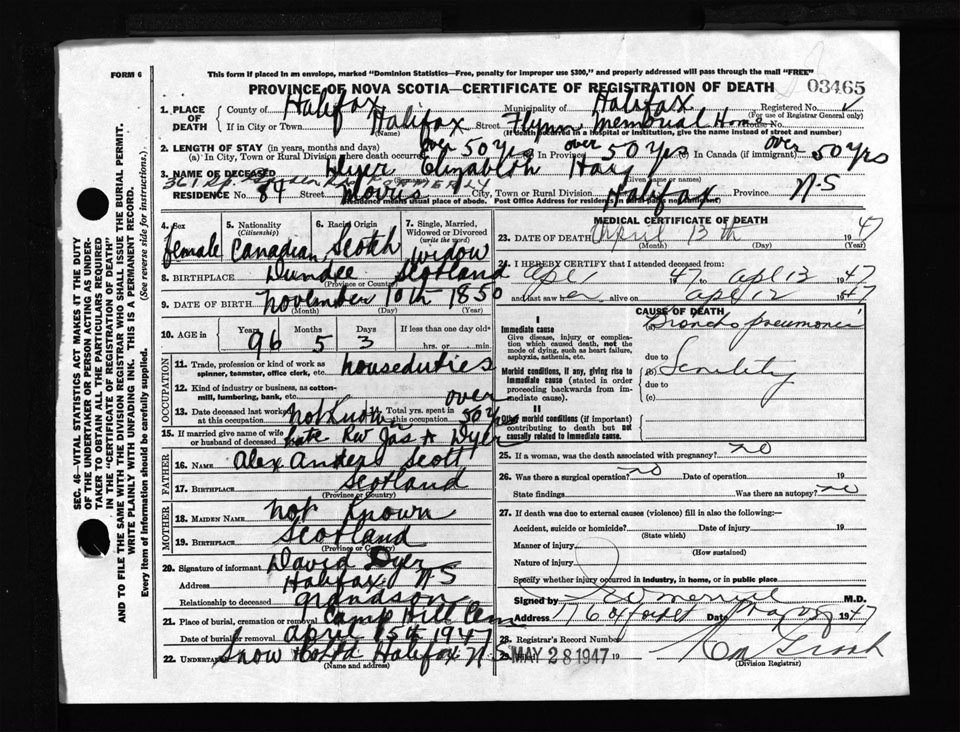 FORM 6
This form if placed in an envelope, marked "Dominion Statistics—Free, penalty for improper use $300," and properly addressed will pass through the mail "FREE"
PROVINCE OF NOVA SCOTIA—CERTIFICATE OF REGISTRATION OF DEATH
03465
1. PLACE OF DEATH
County of Halifax Municipality of Halifax Registered No.
(For use of Registrar General only)
If in City or Town Halifax Street Flynn Memorial Home House No.
(Name) (If death occurred in a Hospital or institution, give the name instead of street and number)
2. LENGTH OF STAY (in years, months and days)
(a) In City, Town or Rural Division where death occurred over 50 yrs In Province over 50 yrs (c) In Canada (if immigrant) over 50 yrs
3. NAME OF DECEASED Dyer Elizabeth
RESIDENCE No. 89 Street Morris City, Town or Rural Division Halifax Province N.S
Residence means usual place of abode. Post Office Address for residents in rural parts
4. Sex female
5. Nationality (Citizenship) Canadian
6. Racial Origin Scotch
7. Single, Married, Widowed or Divorced (write the word) widow
8. BIRTHPLACE Dundee Scotland
(Province or Country)
9. DATE OF BIRTH November 10th 1850
(Month) (Day) (Year)
10. AGE in Years 96 Months 5 Days 3 If less than one day old
hrs. or min.
OCCUPATION
11. Trade, profession or kind of work as spinner, teamster, office clerk, etc. houseduties
12. Kind of industry or business, as cotton-mill, lumbering, bank, etc.
13. Date deceased last worked at this occupation not Known Total yrs. spent in this occupation over 50 yrs
15. If married give name of wife or husband of deceased late Jas A Dyer
FATHER
16. NAME Alexander Scott
17. BIRTHPLACE Scotland
(Province or Country)
MOTHER
18. MAIDEN NAME not Known
19. BIRTHPLACE Scotland
(Province or Country)
20. Signature of informant David Dyer
Address Halifax N S
Relationship to deceased grandson
21. Place of burial, cremation or removal Camp Hill Cem
Date of burial or removal april 15th 1947
22. UNDERTAKER Snow & Co Ltd Halifax N.S
(Name and address)
MEDICAL CERTIFICATE OF DEATH
23. DATE OF DEATH April 13th 1947
(Month) (Day) (Year)
24. I HEREBY CERTIFY that I attended deceased from
Apl 1 1947 to apl 13 1947
and last saw er alive on apl 12 1947
CAUSE OF DEATH
I
Immediate cause
Give disease, injury or complication which caused death, not the mode of dying, such as heart failure, asphyxia, asthenia, etc.
(a) Broncho pneumonia
due to
Morbid conditions, if any, giving rise to immediate cause (stated in order proceeding backwards from immediate cause).
(b) Senility
due to
(c)
II
Other morbid conditions (if important) contributing to death but not causally related to immediate cause.
25. If a woman, was the death associated with pregnancy? no
26. Was there a surgical operation? no Date of operation 19
State findings Was there an autopsy? no
27. If death was due to external causes (violence) fill in also the following:—
Accident, suicide or homicide? Date of injury 19
(State which)
Manner of injury
(How sustained)
Nature of injury
Specify whether injury occurred in industry, in home, or in public place
Signed by Merrill M.D.
Address Date 1947
28. Registrar's Record Number
29. Filed MAY 28 1947 19
(Division Registrar)
SEC. 46—VITAL STATISTICS ACT MAKES IT THE DUTY OF THE UNDERTAKER OR PERSON ACTING AS UNDERTAKER TO OBTAIN ALL THE PARTICULARS REQUIRED IN THE "CERTIFICATE OF REGISTRATION OF DEATH" AND TO FILE THE SAME WITH THE DIVISION REGISTRAR WHO SHALL ISSUE THE BURIAL PERMIT.
WRITE PLAINLY WITH UNFADING INK. THIS IS A PERMANENT RECORD.
Every item of Information should be carefully supplied. (See reverse side for instructions.)